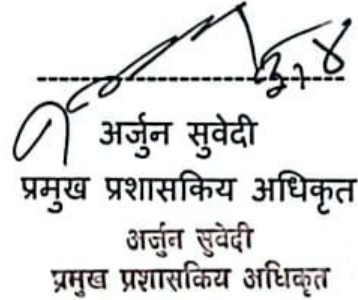 अर्जुन सुवेदी
प्रमुख प्रशासकिय अधिकृत
अर्जुन सुवेदी
प्रमुख प्रशासकिय अधिकृत